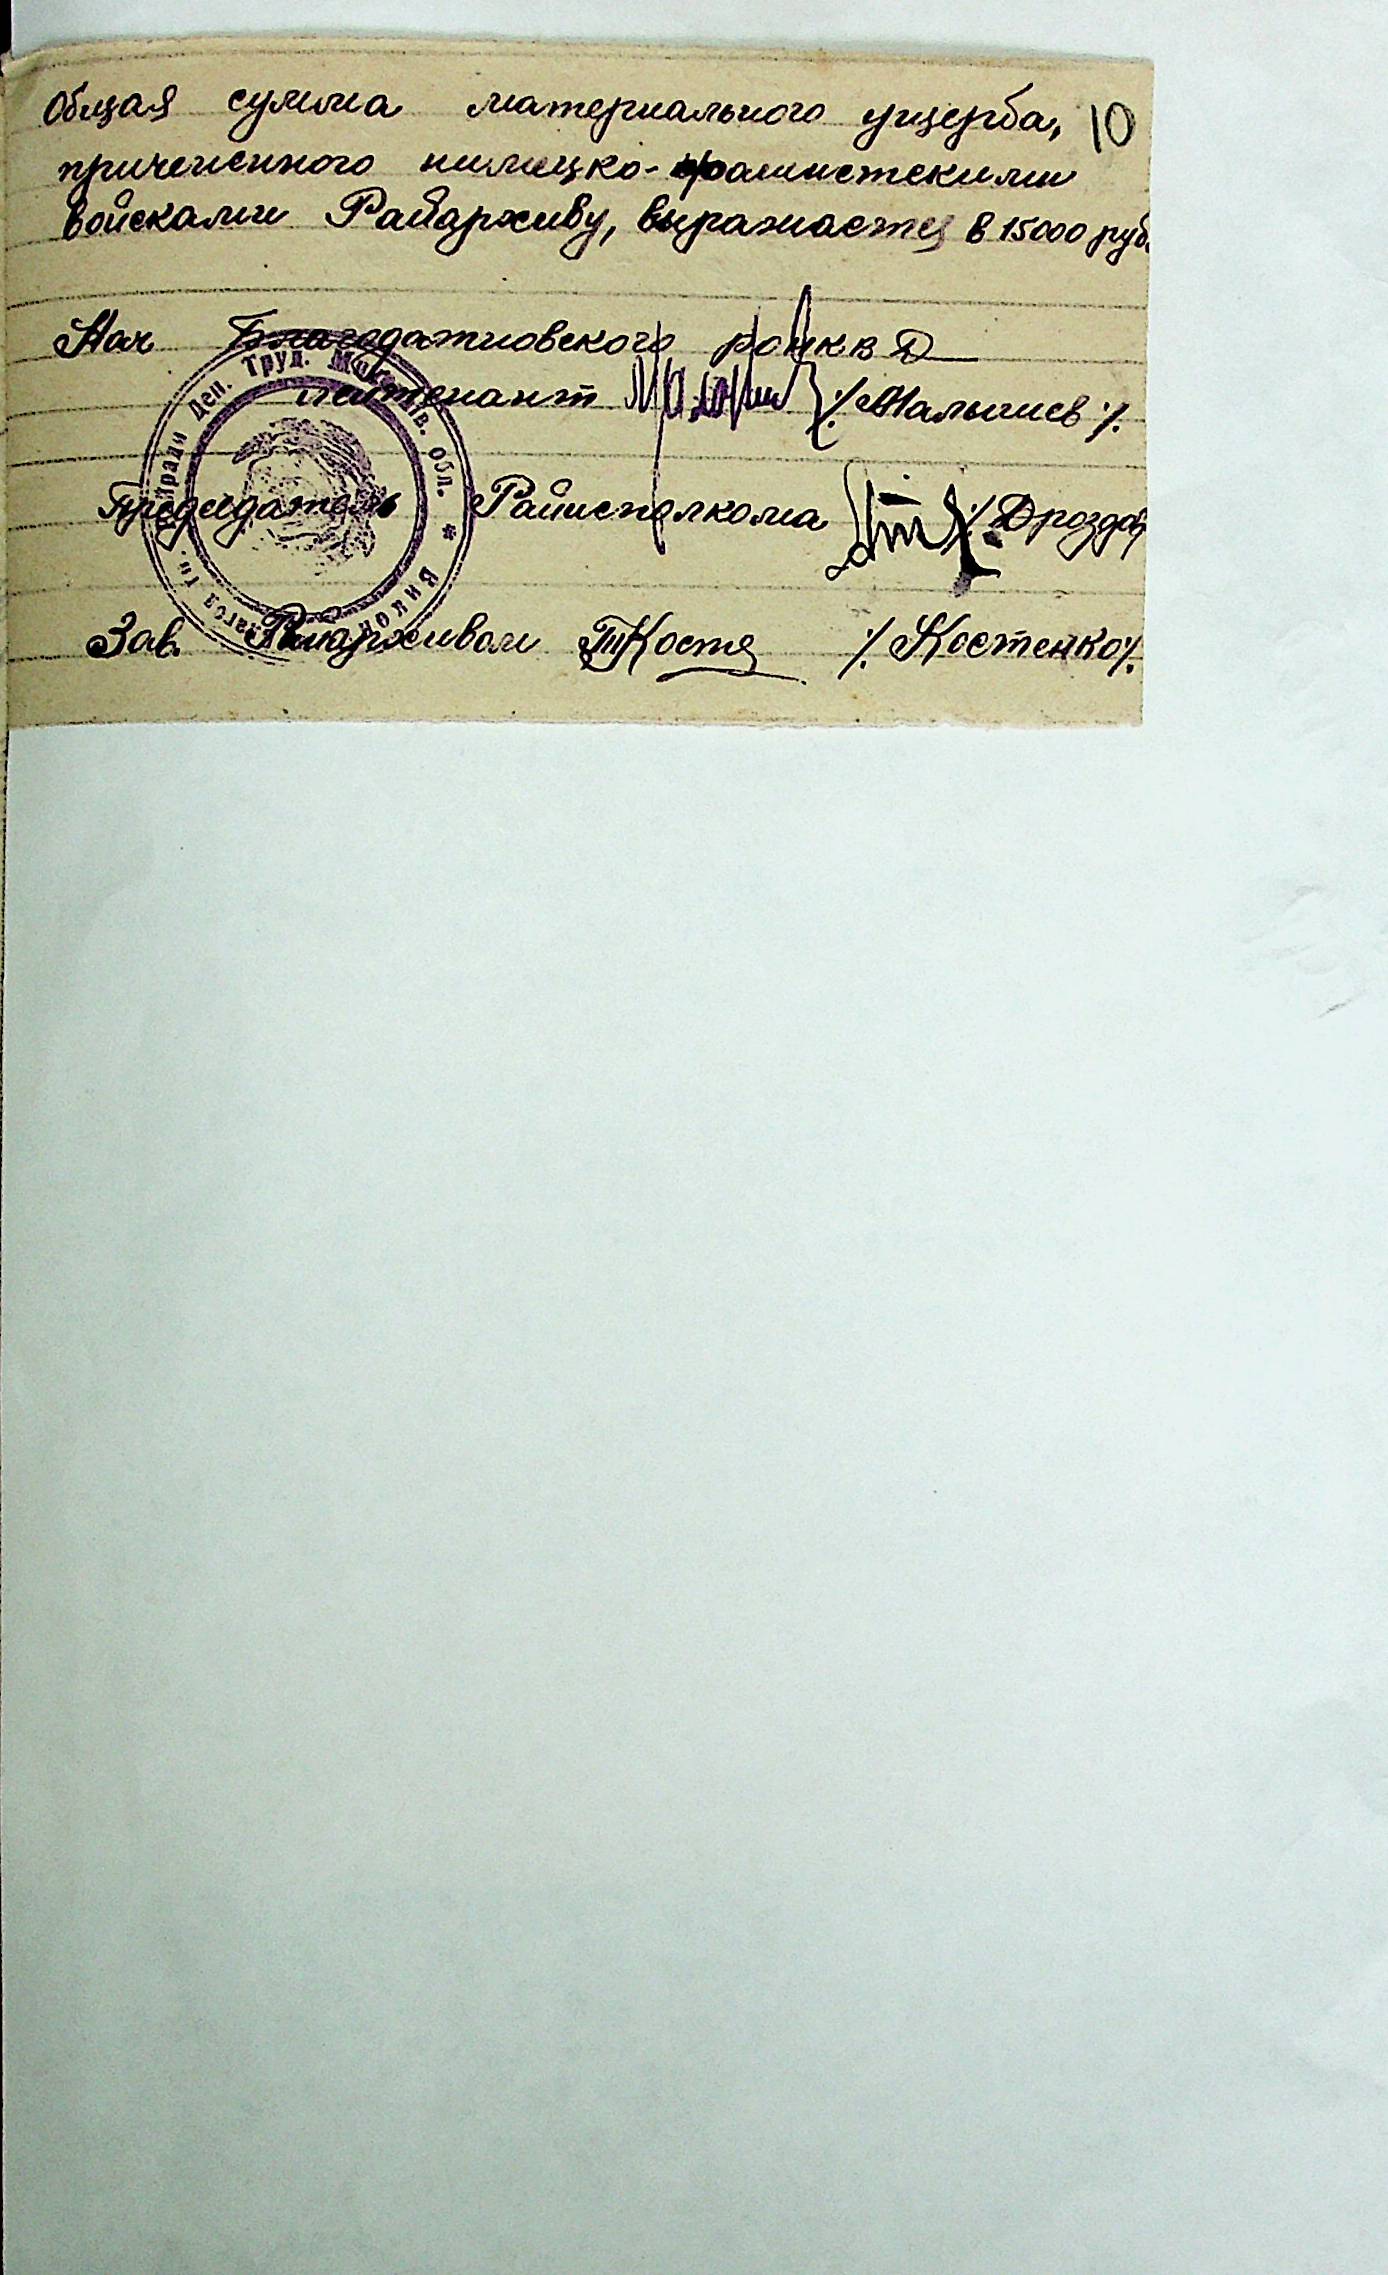 Общая сумма материального ущерба, 10
приченённого нимецко-фашистскими
войсками Райархиву, выражается в 15000 руб.
Нач Благодатновского рОНКВД
лейтенант /Малышев/.
Председатель Райисполкома /Дроздов
Зав. Райархивом ТКостя /Костенко/.
Райради Деп. Труд. Микол. обл. * Виконком